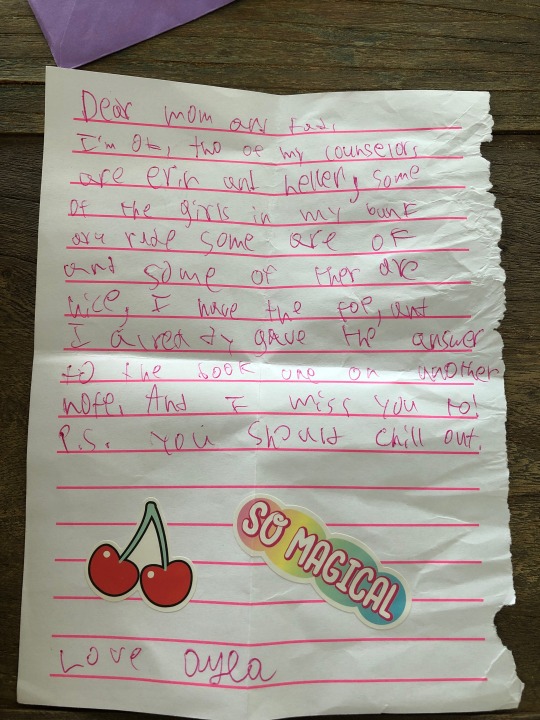 Dear mom and dad,
I'm Ok, two of my counselors
are erin and heller, some
of the girls in my bunk
are rude some are ok
and some of ther are
nice, I have the top, and
I already gave the answer
to the book one on another
note. And I miss you to!
P.S. you should chill out.
SO MAGICAL
Love ayla